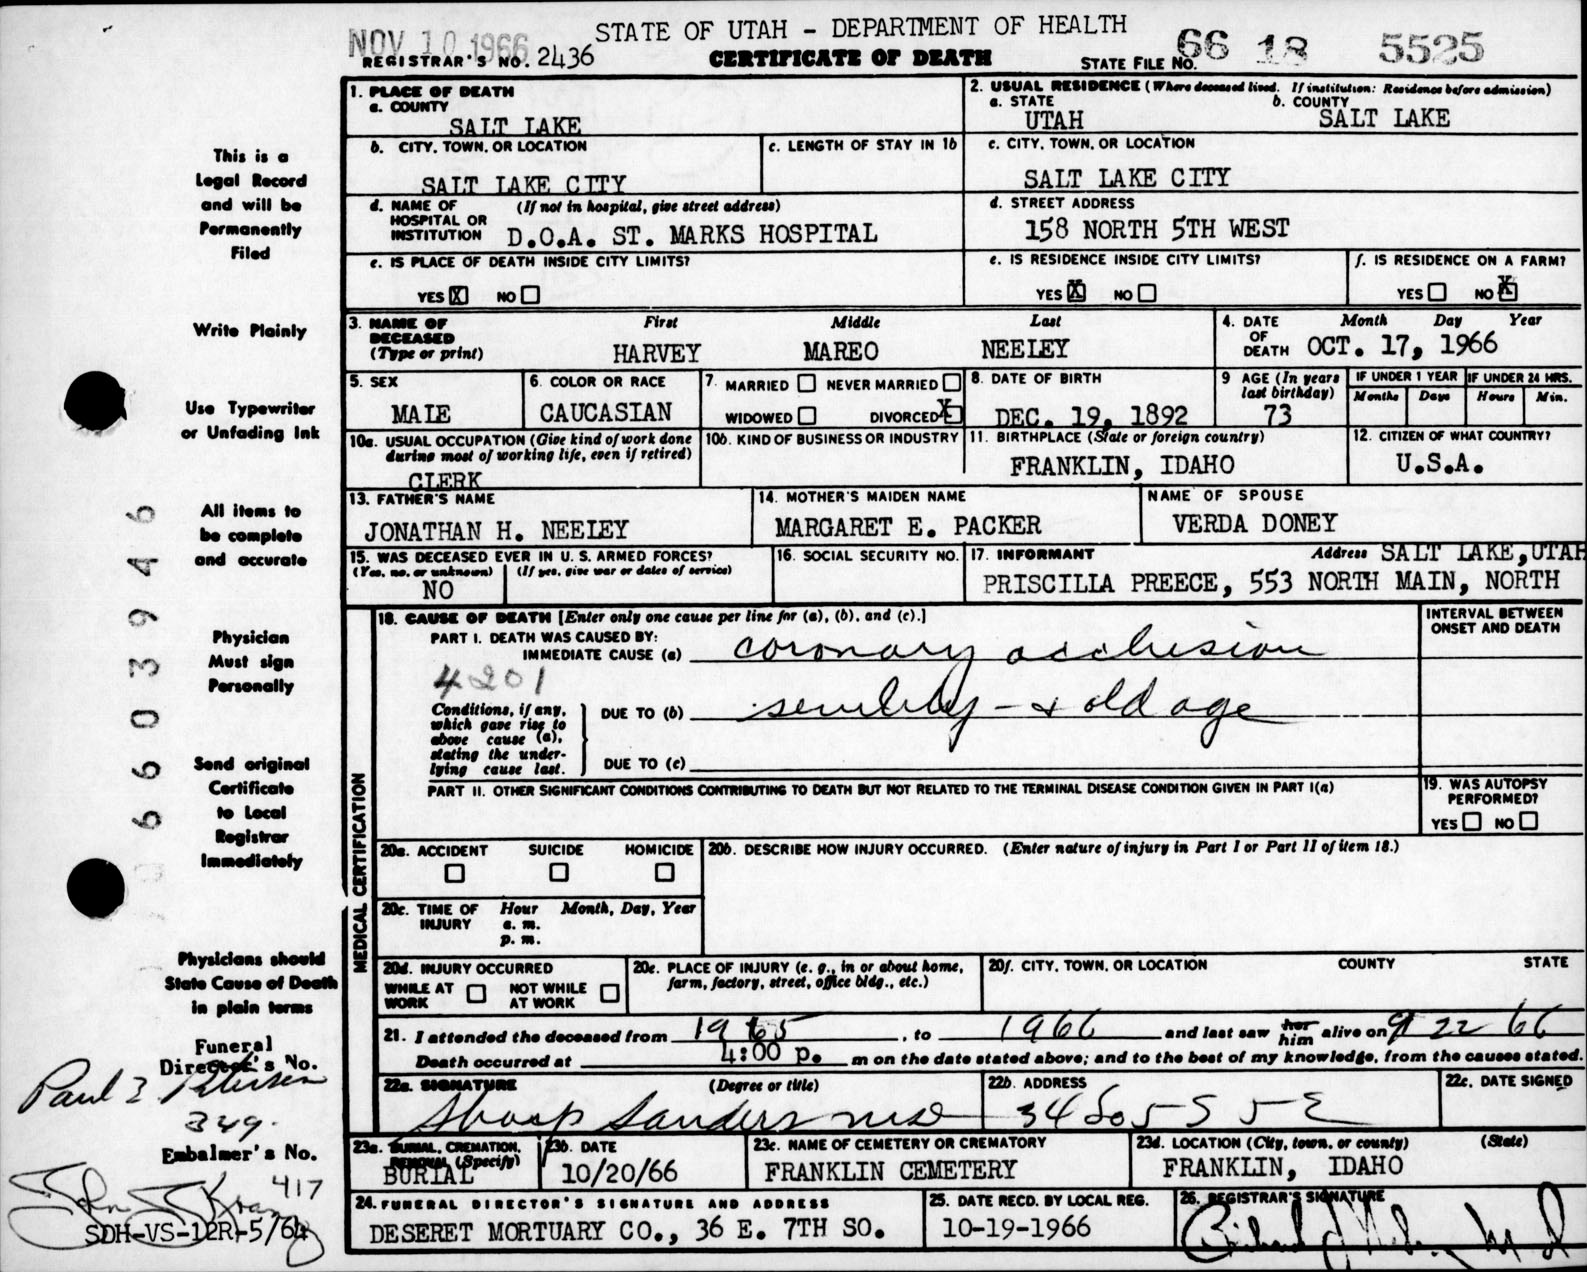 NOV 10 1966
STATE OF UTAH - DEPARTMENT OF HEALTH
REGISTRAR'S NO. 2436
CERTIFICATE OF DEATH
STATE FILE NO. 66 18 5525
1. PLACE OF DEATH
a. COUNTY
SALT LAKE
2. USUAL RESIDENCE (Where deceased lived. If institution: Residence before admission)
a. STATE b. COUNTY
UTAH SALT LAKE
b. CITY, TOWN, OR LOCATION
SALT LAKE CITY
c. LENGTH OF STAY IN 1b
c. CITY, TOWN, OR LOCATION
SALT LAKE CITY
d. NAME OF (If not in hospital, give street address)
HOSPITAL OR
INSTITUTION D.O.A. ST. MARKS HOSPITAL
d. STREET ADDRESS
158 NORTH 5TH WEST
e. IS PLACE OF DEATH INSIDE CITY LIMITS?
YES X NO
e. IS RESIDENCE INSIDE CITY LIMITS?
YES X NO
f. IS RESIDENCE ON A FARM?
YES NO X
3. NAME OF First Middle Last
DECEASED
(Type or print) HARVEY MAREO NEELEY
4. DATE Month Day Year
OF
DEATH OCT. 17, 1966
5. SEX
MALE
6. COLOR OR RACE
CAUCASIAN
7. MARRIED NEVER MARRIED
WIDOWED DIVORCED X
8. DATE OF BIRTH
DEC. 19, 1892
9 AGE (In years
last birthday)
73
IF UNDER 1 YEAR IF UNDER 24 HRS.
Months Days Hours Min.
10a. USUAL OCCUPATION (Give kind of work done
during most of working life, even if retired)
CLERK
10b. KIND OF BUSINESS OR INDUSTRY
11. BIRTHPLACE (State or foreign country)
FRANKLIN, IDAHO
12. CITIZEN OF WHAT COUNTRY?
U.S.A.
13. FATHER'S NAME
JONATHAN H. NEELEY
14. MOTHER'S MAIDEN NAME
MARGARET E. PACKER
NAME OF SPOUSE
VERDA DONEY
15. WAS DECEASED EVER IN U. S. ARMED FORCES?
(Yes, no, or unknown) (If yes, give war or dates of service)
NO
16. SOCIAL SECURITY NO.
17. INFORMANT Address SALT LAKE, UTAH
PRISCILLA PREECE, 553 NORTH MAIN, NORTH
MEDICAL CERTIFICATION
18. CAUSE OF DEATH [Enter only one cause per line for (a), (b), and (c).]
INTERVAL BETWEEN
ONSET AND DEATH
PART I. DEATH WAS CAUSED BY:
IMMEDIATE CAUSE (a) coronary occlusion
4201
Conditions, if any,
which gave rise to
above cause (a),
stating the under-
lying cause last.
DUE TO (b) senility - & old age
DUE TO (c)
PART II. OTHER SIGNIFICANT CONDITIONS CONTRIBUTING TO DEATH BUT NOT RELATED TO THE TERMINAL DISEASE CONDITION GIVEN IN PART I(a)
19. WAS AUTOPSY
PERFORMED?
YES NO
20a. ACCIDENT SUICIDE HOMICIDE
20b. DESCRIBE HOW INJURY OCCURRED. (Enter nature of injury in Part I or Part II of item 18.)
20c. TIME OF Hour Month, Day, Year
INJURY a. m.
p. m.
20d. INJURY OCCURRED
WHILE AT NOT WHILE
WORK AT WORK
20e. PLACE OF INJURY (e. g., in or about home,
farm, factory, street, office bldg., etc.)
20f. CITY, TOWN, OR LOCATION COUNTY STATE
21. I attended the deceased from 1965, to 1966 and last saw her him alive on 9 22 66
Death occurred at 4:00 p. m on the date stated above; and to the best of my knowledge, from the causes stated.
22a. SIGNATURE (Degree or title)
Sharp Sanders MD
22b. ADDRESS
34 So 5 E
22c. DATE SIGNED
23a. BURIAL, CREMATION,
REMOVAL (Specify)
BURIAL
23b. DATE
10/20/66
23c. NAME OF CEMETERY OR CREMATORY
FRANKLIN CEMETERY
23d. LOCATION (City, town, or county) (State)
FRANKLIN, IDAHO
24. FUNERAL DIRECTOR'S SIGNATURE AND ADDRESS
DESERET MORTUARY CO., 36 E. 7TH SO.
25. DATE RECD. BY LOCAL REG.
10-19-1966
26. REGISTRAR'S SIGNATURE
This is a
Legal Record
and will be
Permanently
Filed
Write Plainly
Use Typewriter
or Unfading Ink
All items to
be complete
and accurate
Physician
Must sign
Personally
Send original
Certificate
to Local
Registrar
Immediately
Physicians should
State Cause of Death
in plain terms
Funeral
Director's No.
Paul E Petersen
349.
Embalmer's No.
417
SDH-VS-12R-5/64
6603946